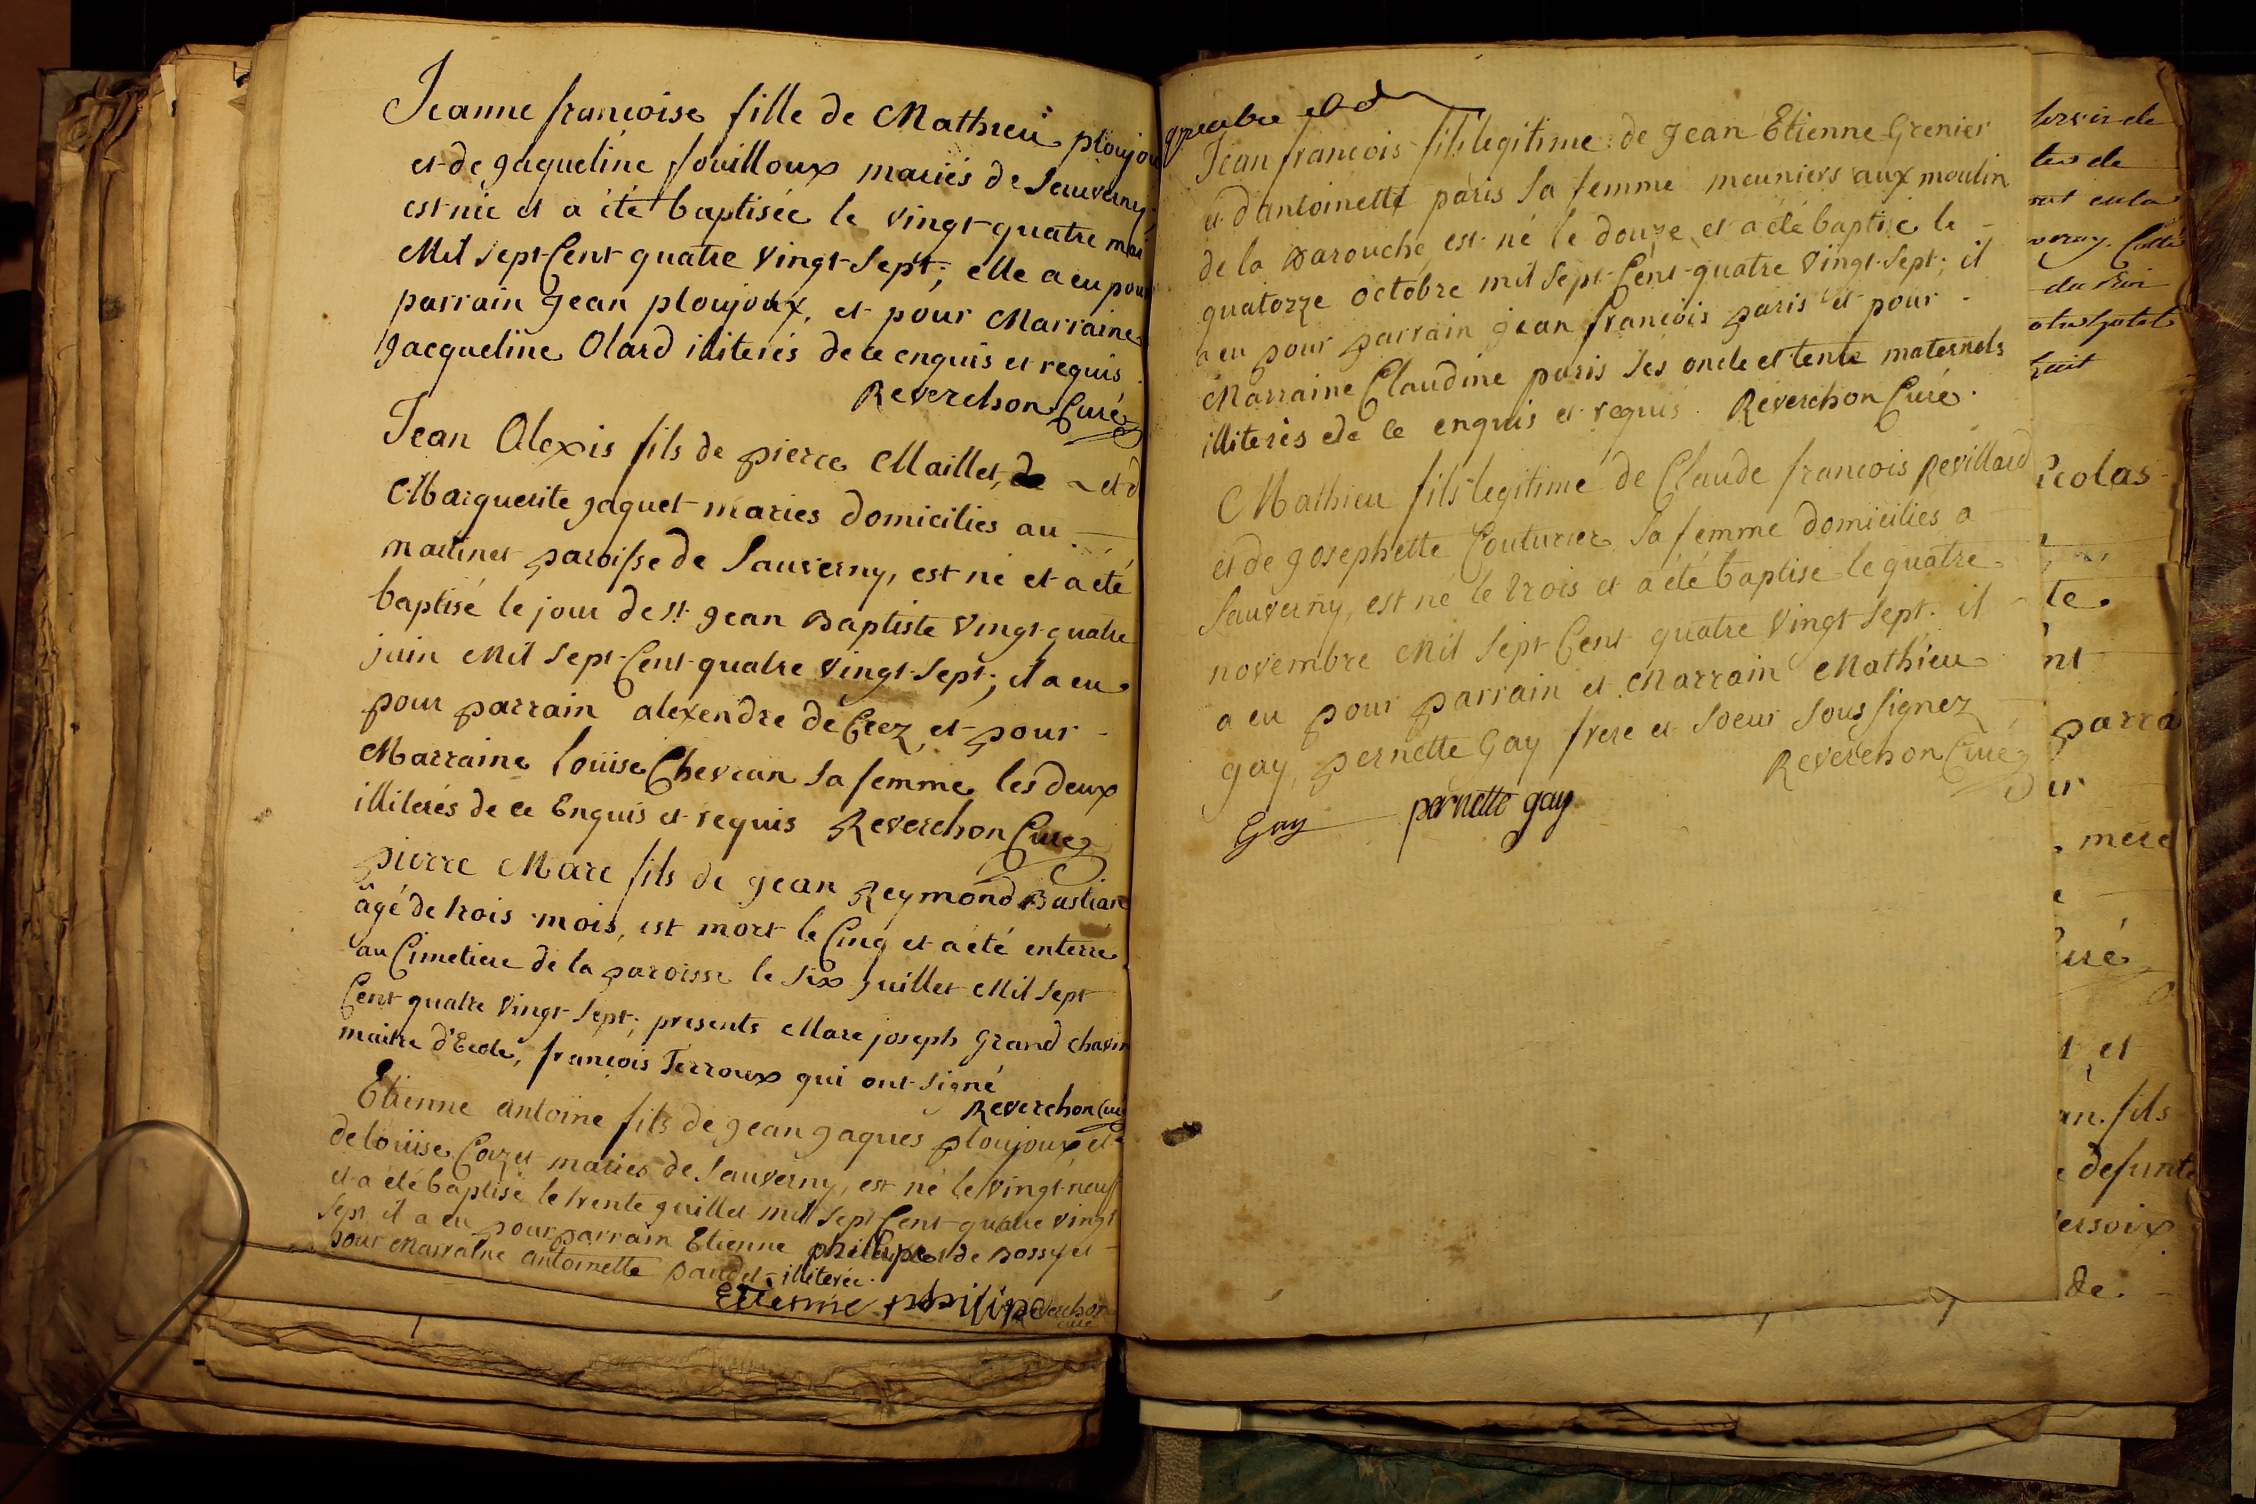 Jeanne françoise fille de Mathieu ploujou
et de jaqueline fouilloux mariés de Sauverny,
est née et a été baptisée le vingt-quatre mai
Mil sept Cent quatre vingt-Sept; elle a eu pour
parrain jean ploujoux, et pour Marraine
jacqueline Olard illiterés de ce enquis et requis.
Reverchon Curé
Jean Alexis fils de pierre Maillet, et d
Marguerite jaquet mariés domiciliés au
martinet paroisse de Sauverny, est né et a été
baptisé le jour de st. jean Baptiste vingt-quatre
juin Mil Sept-Cent-quatre vingt-Sept; il a eu
pour parrain alexendre de Crez, et pour
Marraine louise Chevran sa femme les deux
illiterés de ce Enquis et requis Reverchon Curé
pierre Marc fils de jean Reymond Bastian
âgé de trois mois, est mort le Cinq et a été enterré
au Cimetiere de la paroisse le Six Juillet Mil Sept
Cent quatre vingt-Sept; presents Marc joseph Grand Chavin
maitre d'Ecole, françois Terroux qui ont Signé
Reverchon Curé
Etienne antoine fils de jean jaques ploujoux, et
de louise Cazet mariés de Sauverny, est né le vingt-neuf
et a été baptisé le trente juillet mil Sept Cent-quatre vingt
Sept il a eu pour parrain Etienne philipe de Bossy et
pour Marraine antoinette illiterée.
Etienne philipe Reverchon
curé
Jean françois fils legitime de jean Etienne Grenier
et d'antoinette paris Sa femme meuniers aux moulin
de la Barouche est né le douze et a été baptisé le
quatorze octobre mil Sept-Cent-quatre vingt-Sept; il
a eu pour parrain jean françois paris et pour
Marraine Claudine paris Ses oncle et tente maternels
illiterés de ce enquis et requis. Reverchon Curé.
Mathieu fils legitime de Claude françois Revillard
et de josephette Couturier Sa femme domiciliés a
Sauverny, est né le trois et a été baptisé le quatre
novembre Mil Sept-Cent quatre vingt-Sept. il
a eu pour parrain et Marrain Mathieu
gay, pernette Gay frere et Soeur Sous signez
Reverchon Curé
Gay pernette gay
colas
te
nt
parra
ur
mere
uré
et
an. fils
defunte
ersoix
de.